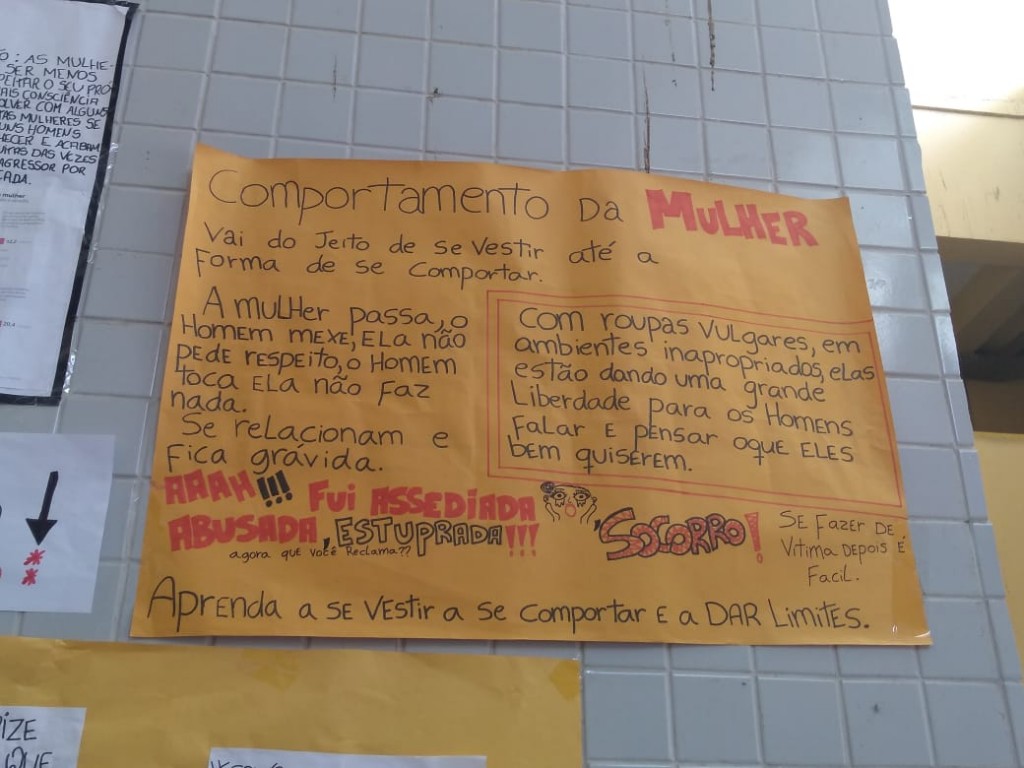 : AS MULHE-
SER MENOS
PEITAR O SEU PRÓ-
AIS CONSCIÊNCIA
OLVER COM ALGUNS
TAS MULHERES SE
UNS HOMENS
HECER E ACABAM
UITAS DAS VEZES
AGRESSOR POR
CADA.
mulher
COMPORTAMENTO DA MULHER
Vai do Jeito de se Vestir até a
Forma de se comportar.
A MULHER passa, o
Homem mexe, ELa não
pede respeito, o Homem
toca ELa não Faz
nada.
Se relacionam e
Fica grávida.
Com roupas Vulgares, em
ambientes inapropriados, elas
estão dando uma grande
Liberdade para os Homens
Falar E pensar oque ELES
bem quiserem.
AAAH!!! Fui ASSEDIADA
ABUSADA, ESTUPRADA!!!
agora que Você Reclama??
SOCORRO!
SE Fazer DE
Vítima Depois é
Facil.
Aprenda a se Vestir a se comportar E a DAR Limites.
IZE
QUE